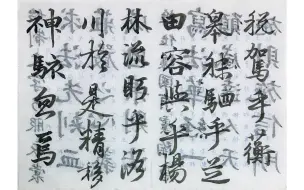 税駕乎蘅
皋秣駟乎芝
田容與乎楊
林流眄乎洛
川於是精移
神駭忽焉